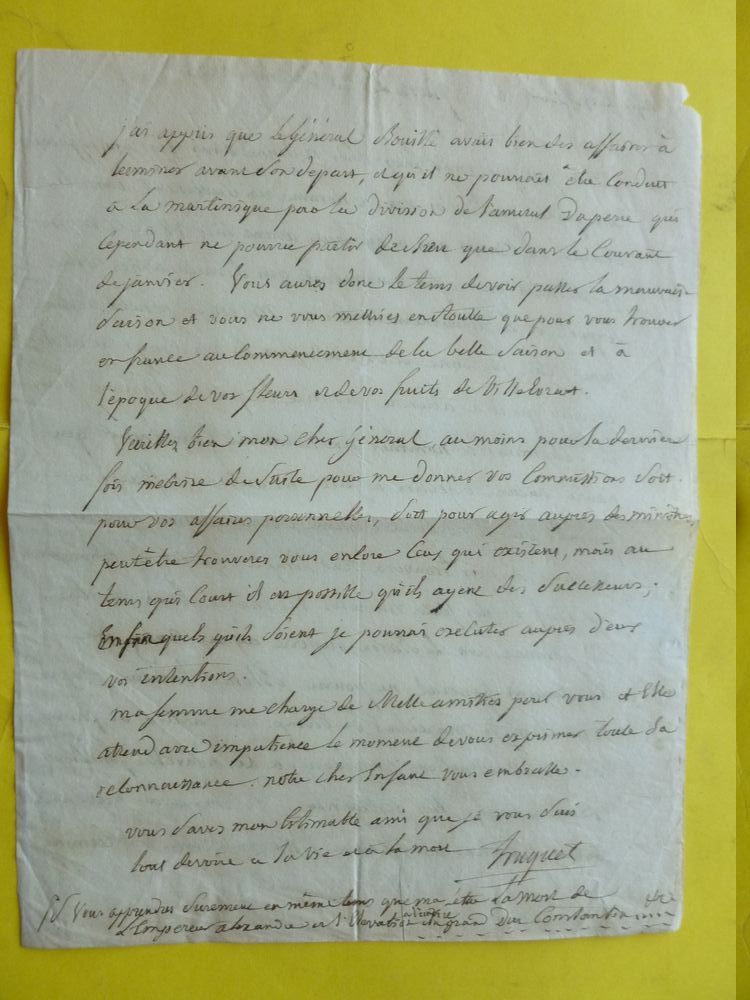 j'ai appris que le Général Bouillé avais bien des affaires à
terminer avant son depart, et qu'il ne pourrais être conduit
à la martinique par la division de l'amiral Duperré qui
cependant ne pourra partir de brest que dans le Courant
de janvier. Vous aures donc le tems de voir passer la mauvaise
Saison et vous ne vous mettres en Route que pour vous trouver
en france au Commencement de la belle Saison et à
l'époque de vos fleurs et de vos fruits de Villevrart.
Veuillez bien mon cher Général, au moins pour la derniere
fois m'ecrire de Suite pour me donner vos Commissions Soit
pour vos affaires personnelles, Soit pour agir aupres des ministres,
peut être trouveres vous encore Ceux qui existent, mais au
tems qui Court il est possible qu'ils ayent des Successeurs;
Enfin quels qu'ils Soient je pourrai executer aupres d'eux
vos intentions.
ma femme me charge de Mille amitiés pour vous et Elle
atend avec impatience le moment de vous exprimer toute Sa
reconnaissance. notre cher Enfant vous embrasse.
vous Saves mon Estimable ami que je vous Suis
tout devoué a la vie et a la mort Truguet
Vous apprendres Surement en même tems que ma lettre la mort de
L'Empereur alexandre et l'Elevation a l'empire du grand Duc Constantin